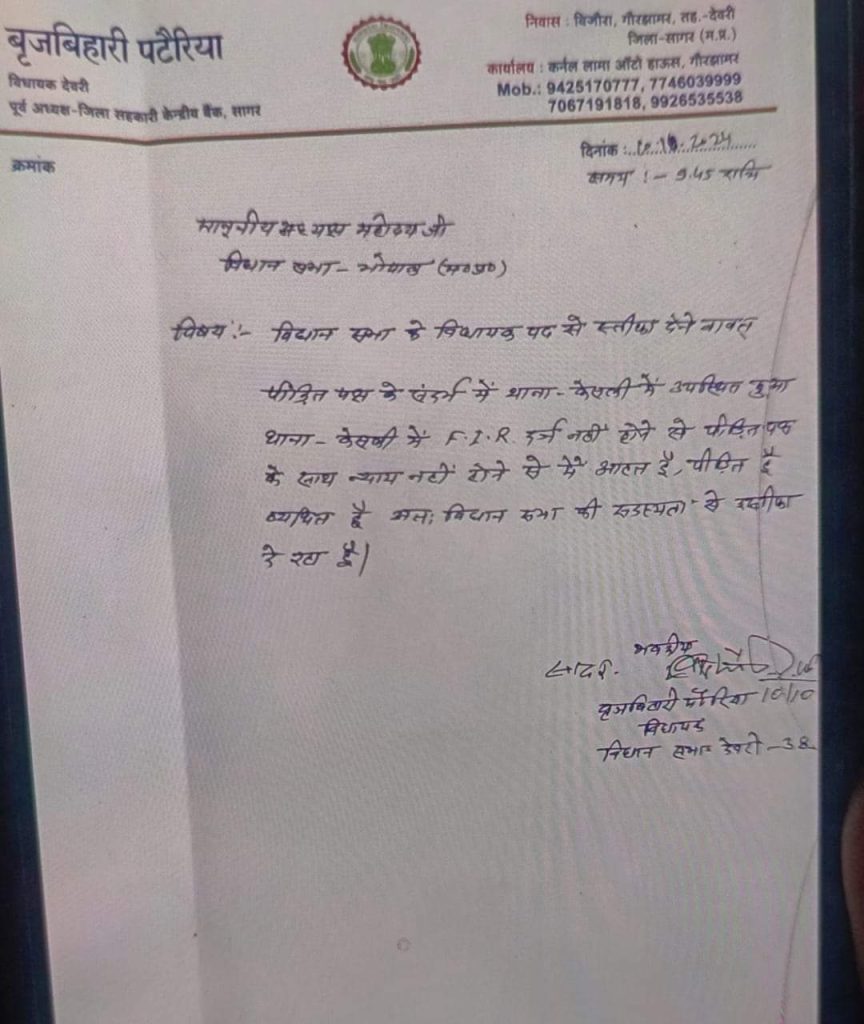 बृजबिहारी पटैरिया
विधायक देवरी
पूर्व अध्यक्ष-जिला सहकारी केन्द्रीय बैंक, सागर
निवास : बिजौरा, गौरझामर, तह.-देवरी
जिला-सागर (म.प्र.)
कार्यालय : कर्नल लामा ऑटो हाऊस, गौरझामर
Mob.: 9425170777, 7746039999
7067191818, 9926535538
क्रमांक
दिनांक : 10.10.2024
समय :- 9.45 रात्रि
माननीय अध्यक्ष महोदय जी
विधान सभा - भोपाल (म०प्र०)
विषय :- विधान सभा के विधायक पद से स्तीफा देने बावत्
पीड़ित पक्ष के संदर्भ में थाना - केसली में उपस्थित हुआ
थाना - केसली में F.I.R. दर्ज नहीं होने से पीड़ित पक्ष
के साथ न्याय नहीं होने से मैं आहत हूँ, पीड़ित हूँ
व्यथित हूँ अतः विधान सभा की सदस्यता से स्तीफा
दे रहा हूँ।
भवदीय
सादर.
10/10
बृजबिहारी पटैरिया
विधायक
विधान सभा देवरी - 38